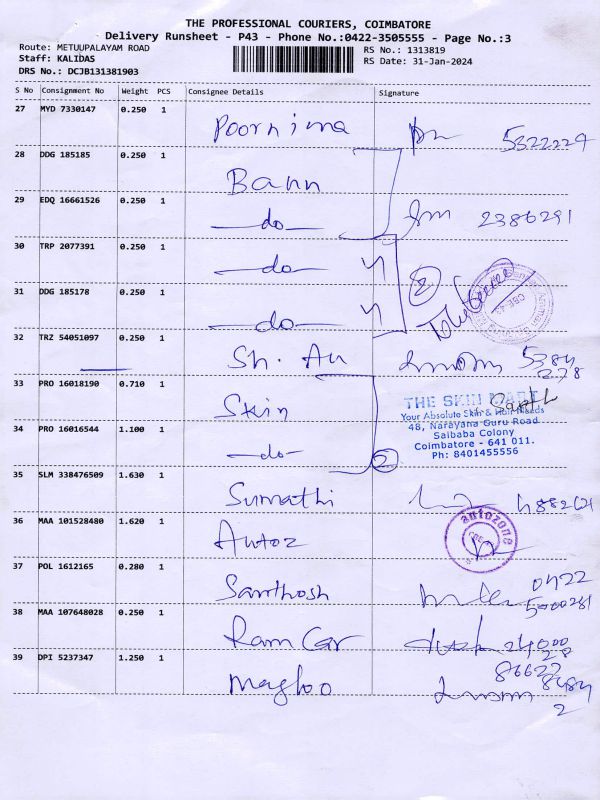 THE PROFESSIONAL COURIERS, COIMBATORE
Delivery Runsheet - P43 - Phone No.:0422-3505555 - Page No.:3
Route: METUUPALAYAM ROAD
Staff: KALIDAS
DRS No.: DCJB131381903
RS No.: 1313819
RS Date: 31-Jan-2024
S No Consignment No Weight PCS Consignee Details Signature
27 MYD 7330147 0.250 1 Poornima 5322229
28 DDG 185185 0.250 1 Bann
29 EDQ 16661526 0.250 1 —do— 2386291
30 TRP 2077391 0.250 1 —do—
31 DDG 185178 0.250 1 —do— 2
32 TRZ 54051097 0.250 1 Sh. An
33 PRO 16018190 0.710 1 Skin
34 PRO 16016544 1.100 1 —do— 2
THE SKIN MART
Your Absolute Skin & Hair Needs
48, Narayana Guru Road
Saibaba Colony
Coimbatore - 641 011.
Ph: 8401455556
35 SLM 338476509 1.630 1 Sumathi
36 MAA 101528480 1.620 1 Autoz
autozone
37 POL 1612165 0.280 1 Santhosh 0422
38 MAA 107648028 0.250 1 Ram Car 24000
28
39 DPI 5237347 1.250 1